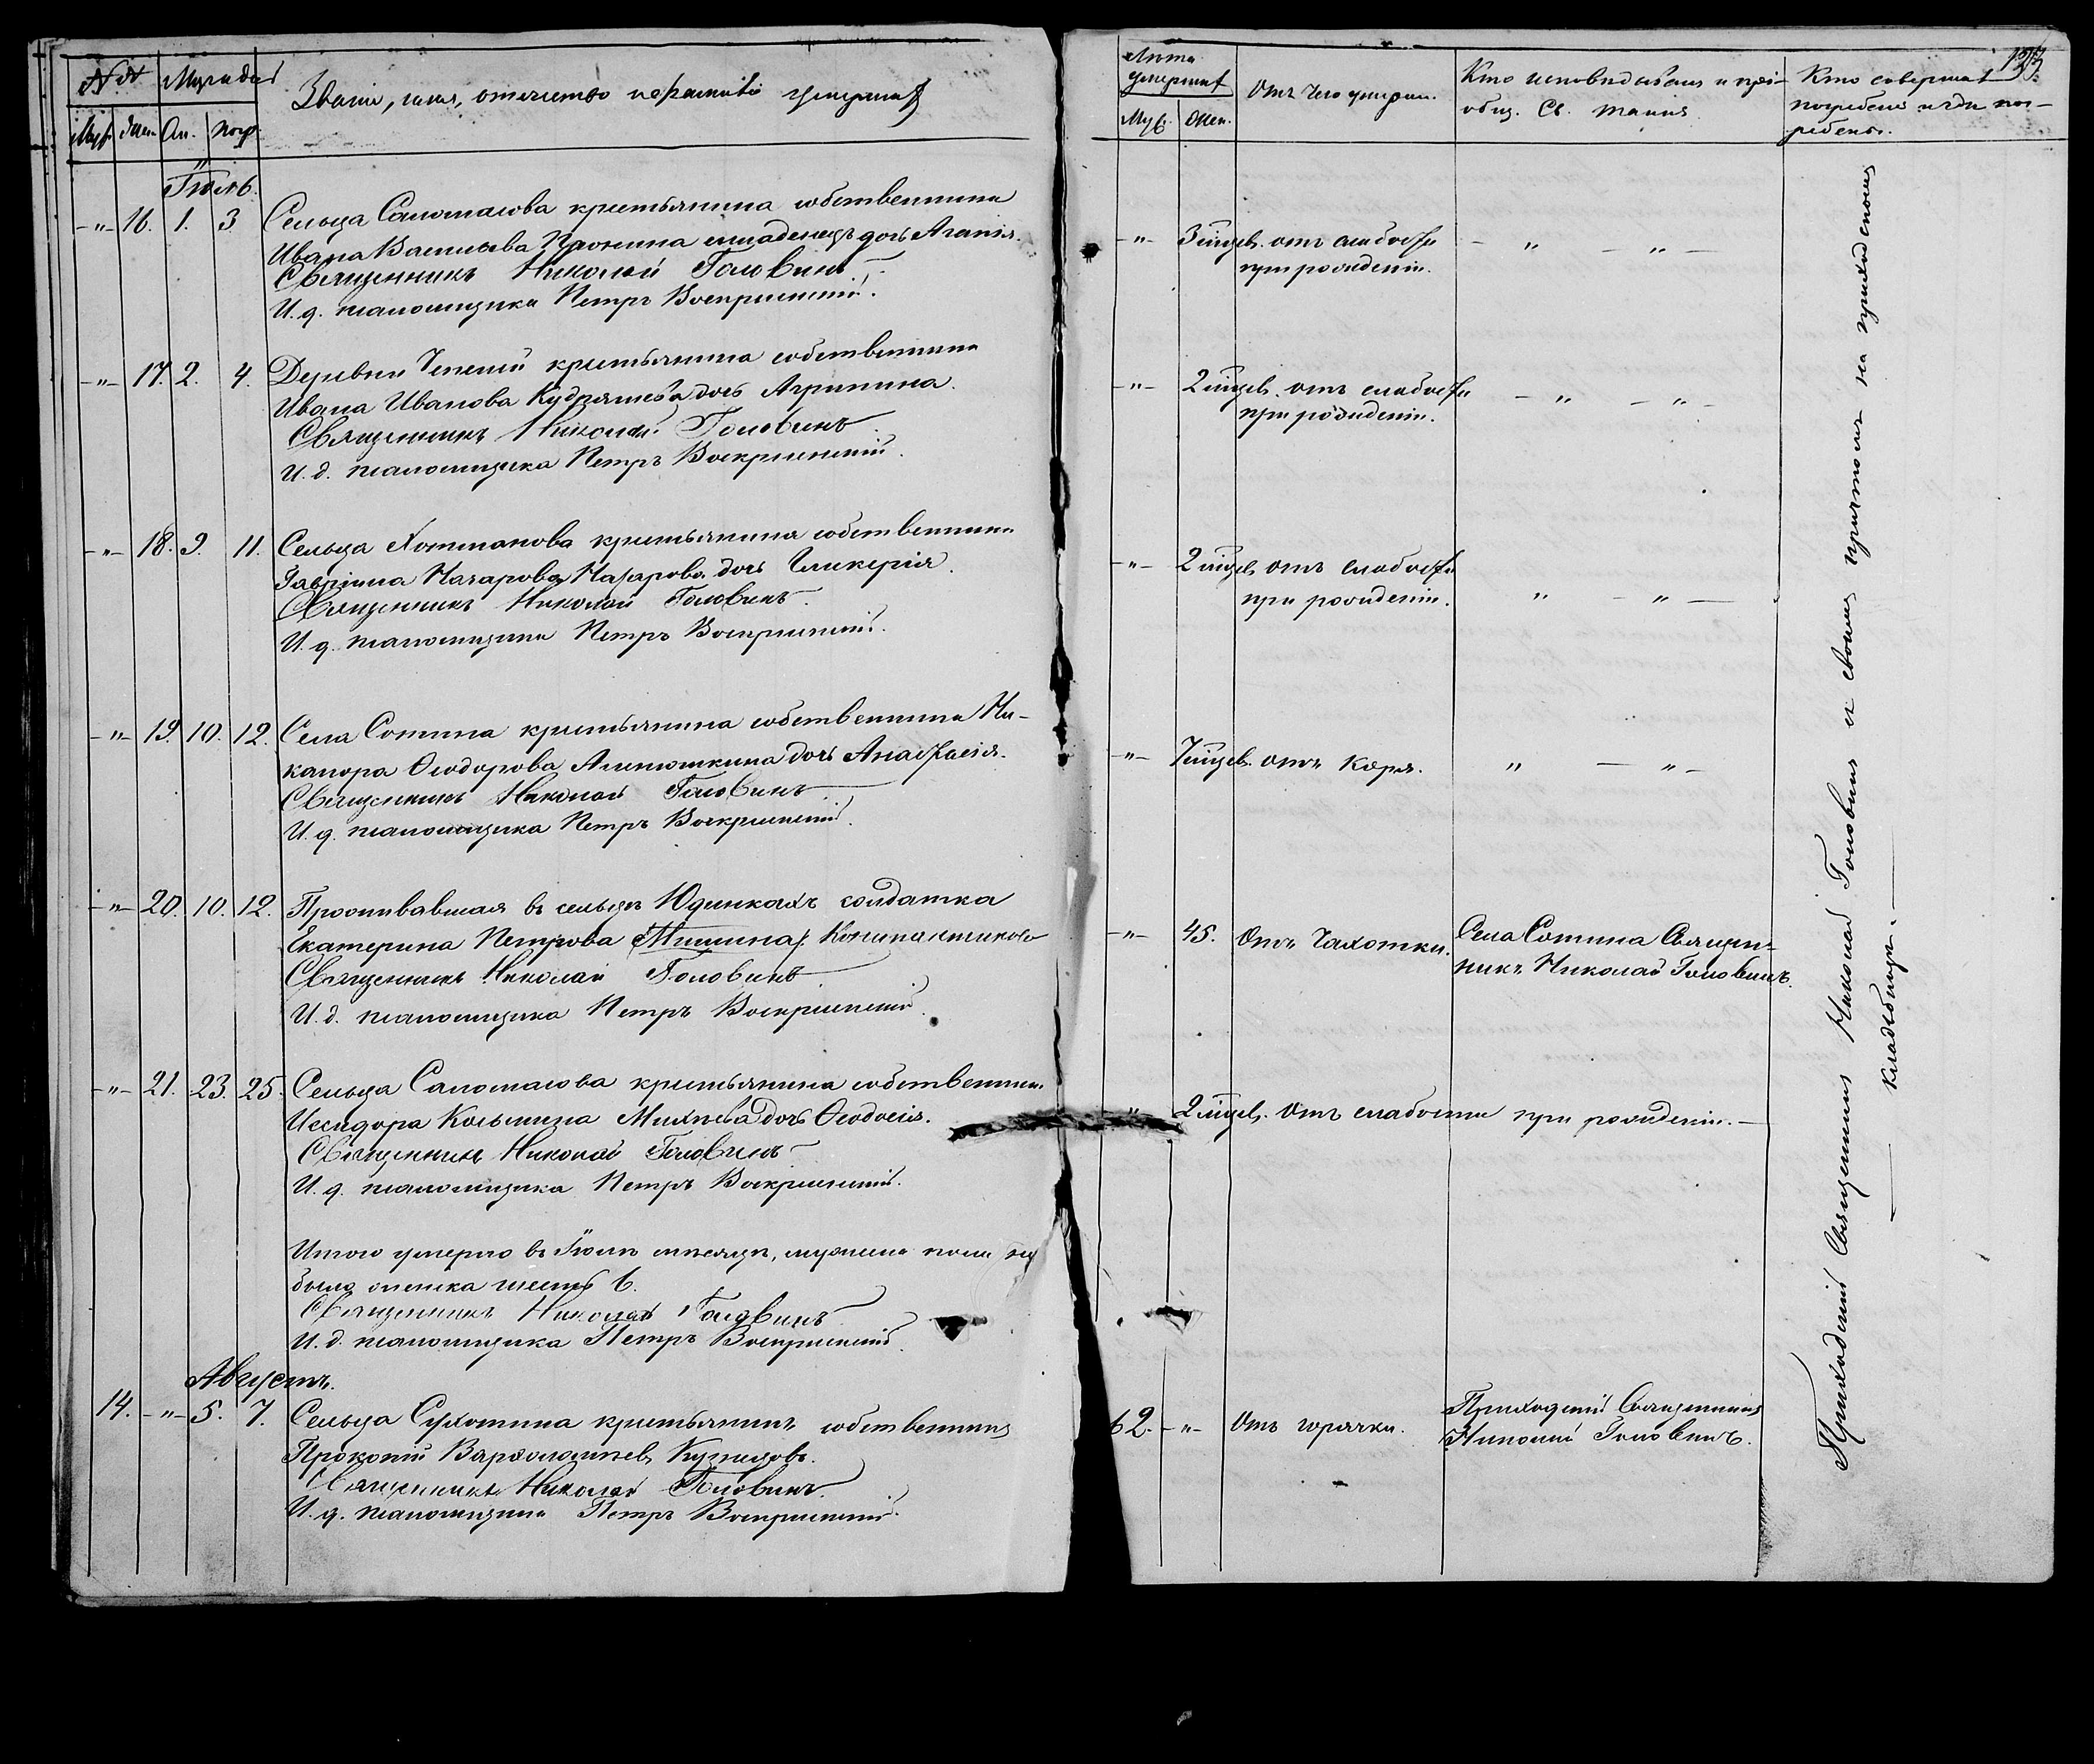 №№ Мѣсяц. и дни
Муж. Жен. См. погр.
Званіе, имя, отечество и фамилія умершихъ
Лѣта умершаг.
Муж. Жен.
Отъ чего умерли.
Кто исповѣдывалъ и прі-
общ. Св. таинъ
Кто совершалъ
погребеніе и гдѣ пог-
ребены.
Іюль.
-"- 16. 1. 3 Сельца Саломасова крестьянина собственника
Ивана Васильева Пронина младенецъ дочь Агапія.
Священникъ Николай Головинъ.
И. д. псаломщика Петръ Воскресенскій.
-"- 3 мѣсяц. отъ слабости - " - " -
при рожденіи.
-"- 17. 2. 4. Деревни крестьянина собственника
Ивана Иванова Кудряшева дочь Агрипина.
Священникъ Николай Головинъ
И. д. псаломщика Петръ Воскресенскій.
-"- 2 мѣсяц. отъ слабости - " - " -
при рожденіи.
-"- 18. 9. 11. Сельца крестьянина собственника
Гавріила Назарова Назарова дочь Гликерія.
Священникъ Николай Головинъ.
И. д. псаломщика Петръ Воскресенскій.
-"- 2 мѣсяц. отъ слабости
при рожденіи. " - " -
-"- 19. 10. 12. Села Сотина крестьянина собственника Ни-
канора Ѳеодорова Алтюшкина дочь Анастасія.
Священникъ Николай Головинъ
И. д. псаломщика Петръ Воскресенскій.
-"- 7 мѣсяц. отъ коря. " - " -
-"- 20. 10. 12. Проживавшая въ сельцѣ Юдинкахъ солдатка
Екатерина Петрова Мишина
Священникъ Николай Головинъ
И. д. псаломщика Петръ Воскресенскій.
-"- 45. Отъ чахотки. Села Сотина Священ-
никъ Николай Головинъ.
-"- 21. 23. 25. Сельца Саломасова крестьянина собственник.
Исидора Козьмина Михѣева дочь Ѳеодосія.
Священникъ Николай Головинъ
И. д. псаломщика Петръ Воскресенскій.
" 2 мѣсяц. Отъ слабости при рожденіи. -
Итого умерло въ Іюлѣ мѣсяцѣ, мужска пола не
было женска шесть 6.
Священникъ Николай Головинъ
И. д. псаломщика Петръ Воскресенскій.
Августъ.
14. -"- 5. 7. Сельца Сухотина крестьянинъ собственникъ
Прокопій Варѳоломѣевъ
Священникъ Николай Головинъ
И. д. псаломщика Петръ Воскресенскій.
62. -"- Отъ горячки. Приходскій Священникъ
Николай Головинъ.
Приходскій Священникъ Николай Головинъ съ своимъ причтомъ на приходскомъ
кладбищѣ.